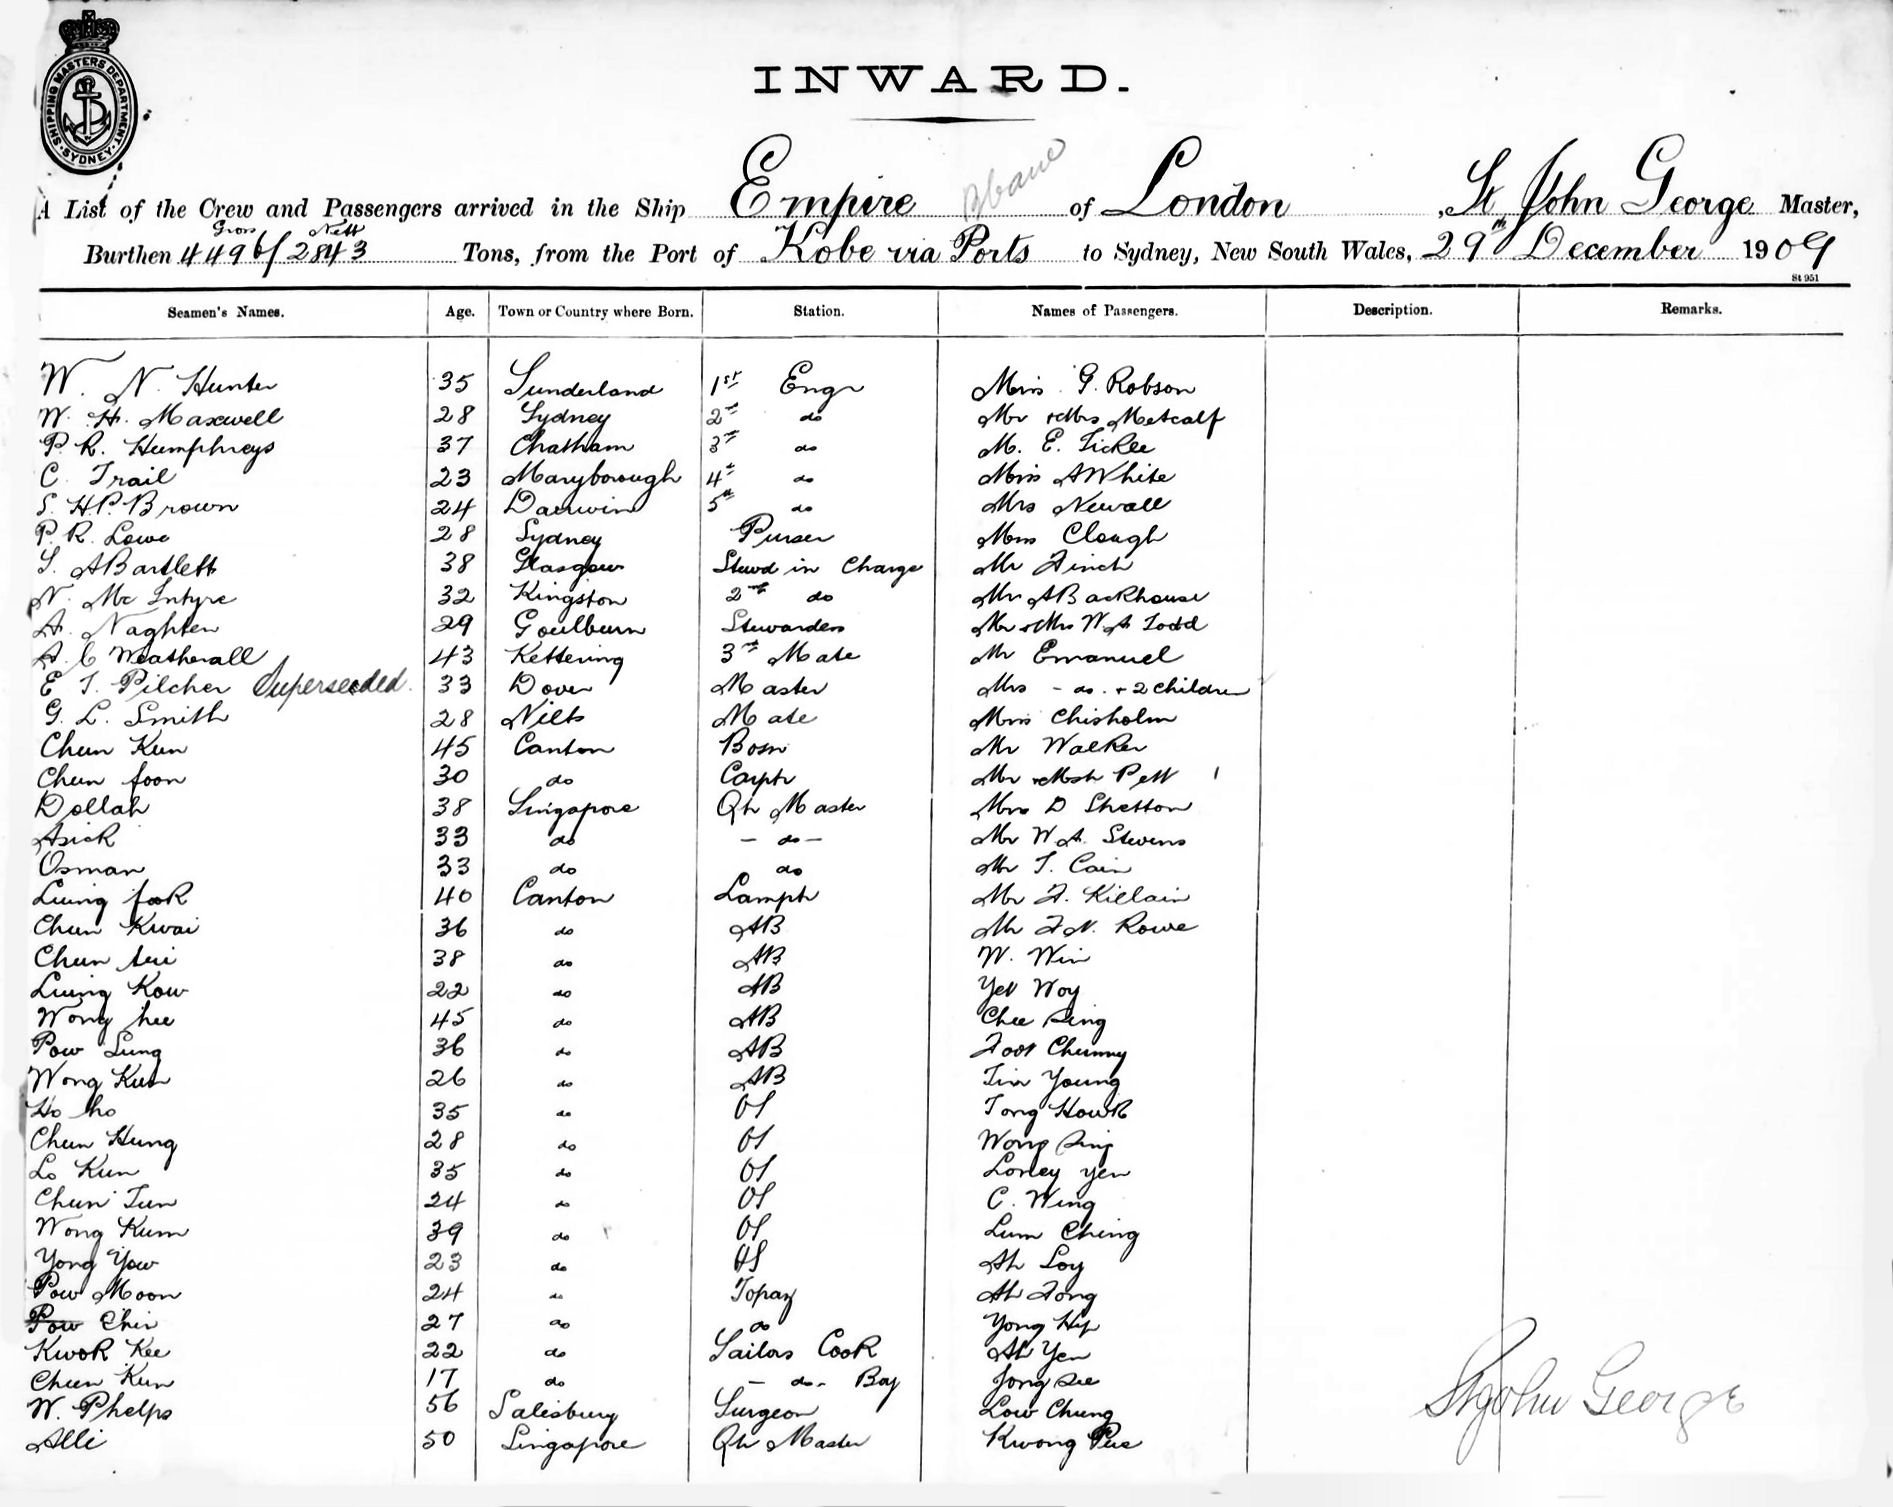 SHIPPING MASTERS DEPARTMENT
SYDNEY
INWARD.
A List of the Crew and Passengers arrived in the Ship Empire Bbane of London, St John George Master,
Burthen 4496 Gross / 2843 Nett Tons, from the Port of Kobe via Ports to Sydney, New South Wales, 29th December 1909
St 951
Seamen's Names. Age. Town or Country where Born. Station. Names of Passengers. Description. Remarks.
W. N. Hunter 35 Sunderland 1st Engr Miss G. Robson
W. H. Maxwell 28 Sydney 2nd do Mr & Mrs Metcalf
P. R. Humphreys 37 Chatham 3rd do M. E. Tickle
C. Trail 23 Maryborough 4th do Miss A White
S. H P. Brown 24 Darwin 5th do Mrs Newall
P. R. Lowe 28 Sydney Purser Miss Clough
S. A Bartlett 38 Glasgow Stewd in Charge Mr Finch
N. Mc Intyre 32 Kingston 2nd do Mr A Backhouse
A. Naghten 29 Goulburn Stewardess Mr & Mrs W A Todd
A. C Weatherall 43 Kettering 3rd Mate Mr Emanuel
E T. Pilcher Superseeded. 33 Dover Master Mrs - do. + 2 Children
G. L. Smith 28 Mate Miss Chisholm
Chun Kun 45 Canton Bosn Mr Walker
Chun foon 30 do Carptr Mr Pett
Dollah 38 Singapore Qtr Master Mrs D Shetton
Asick 33 do - do - Mr W A. Stevens
Osman 33 do do Mr T. Cain
Luing fook 40 Canton Lamptr Mr F. Killain
Chun Kwai 36 do AB Mr F N. Rowe
Chun 38 do AB W. Win
Luing Kow 22 do AB Yet Woy
Wong hee 45 do AB Chee Sing
Pow Sung 36 do AB Foot Chunny
Wong Kun 26 do AB Tim Young
Ho ho 35 do OS Tong Howk
Chun Hung 28 do OS Wong Sing
Lo Kun 35 do OS Loney Yen
Chun Tun 24 do OS C. Wing
Wong Kum 39 do OS Lum Ching
Yong Yow 23 do OS Ah Loy
Pow Moon 24 do Topaz Ah Fong
Pow Chin 27 do do Yong Hip
Kwok Kee 22 do Sailors Cook Ah Yen
Chun Kun 17 do - do - Boy Jong See
W. Phelps 56 Salesbury Surgeon Low Chung
Alli 50 Singapore Qtr Master Kwong Pue
St John George